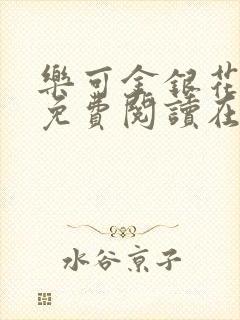 樂可金銀花
免費閱讀在
水谷京子